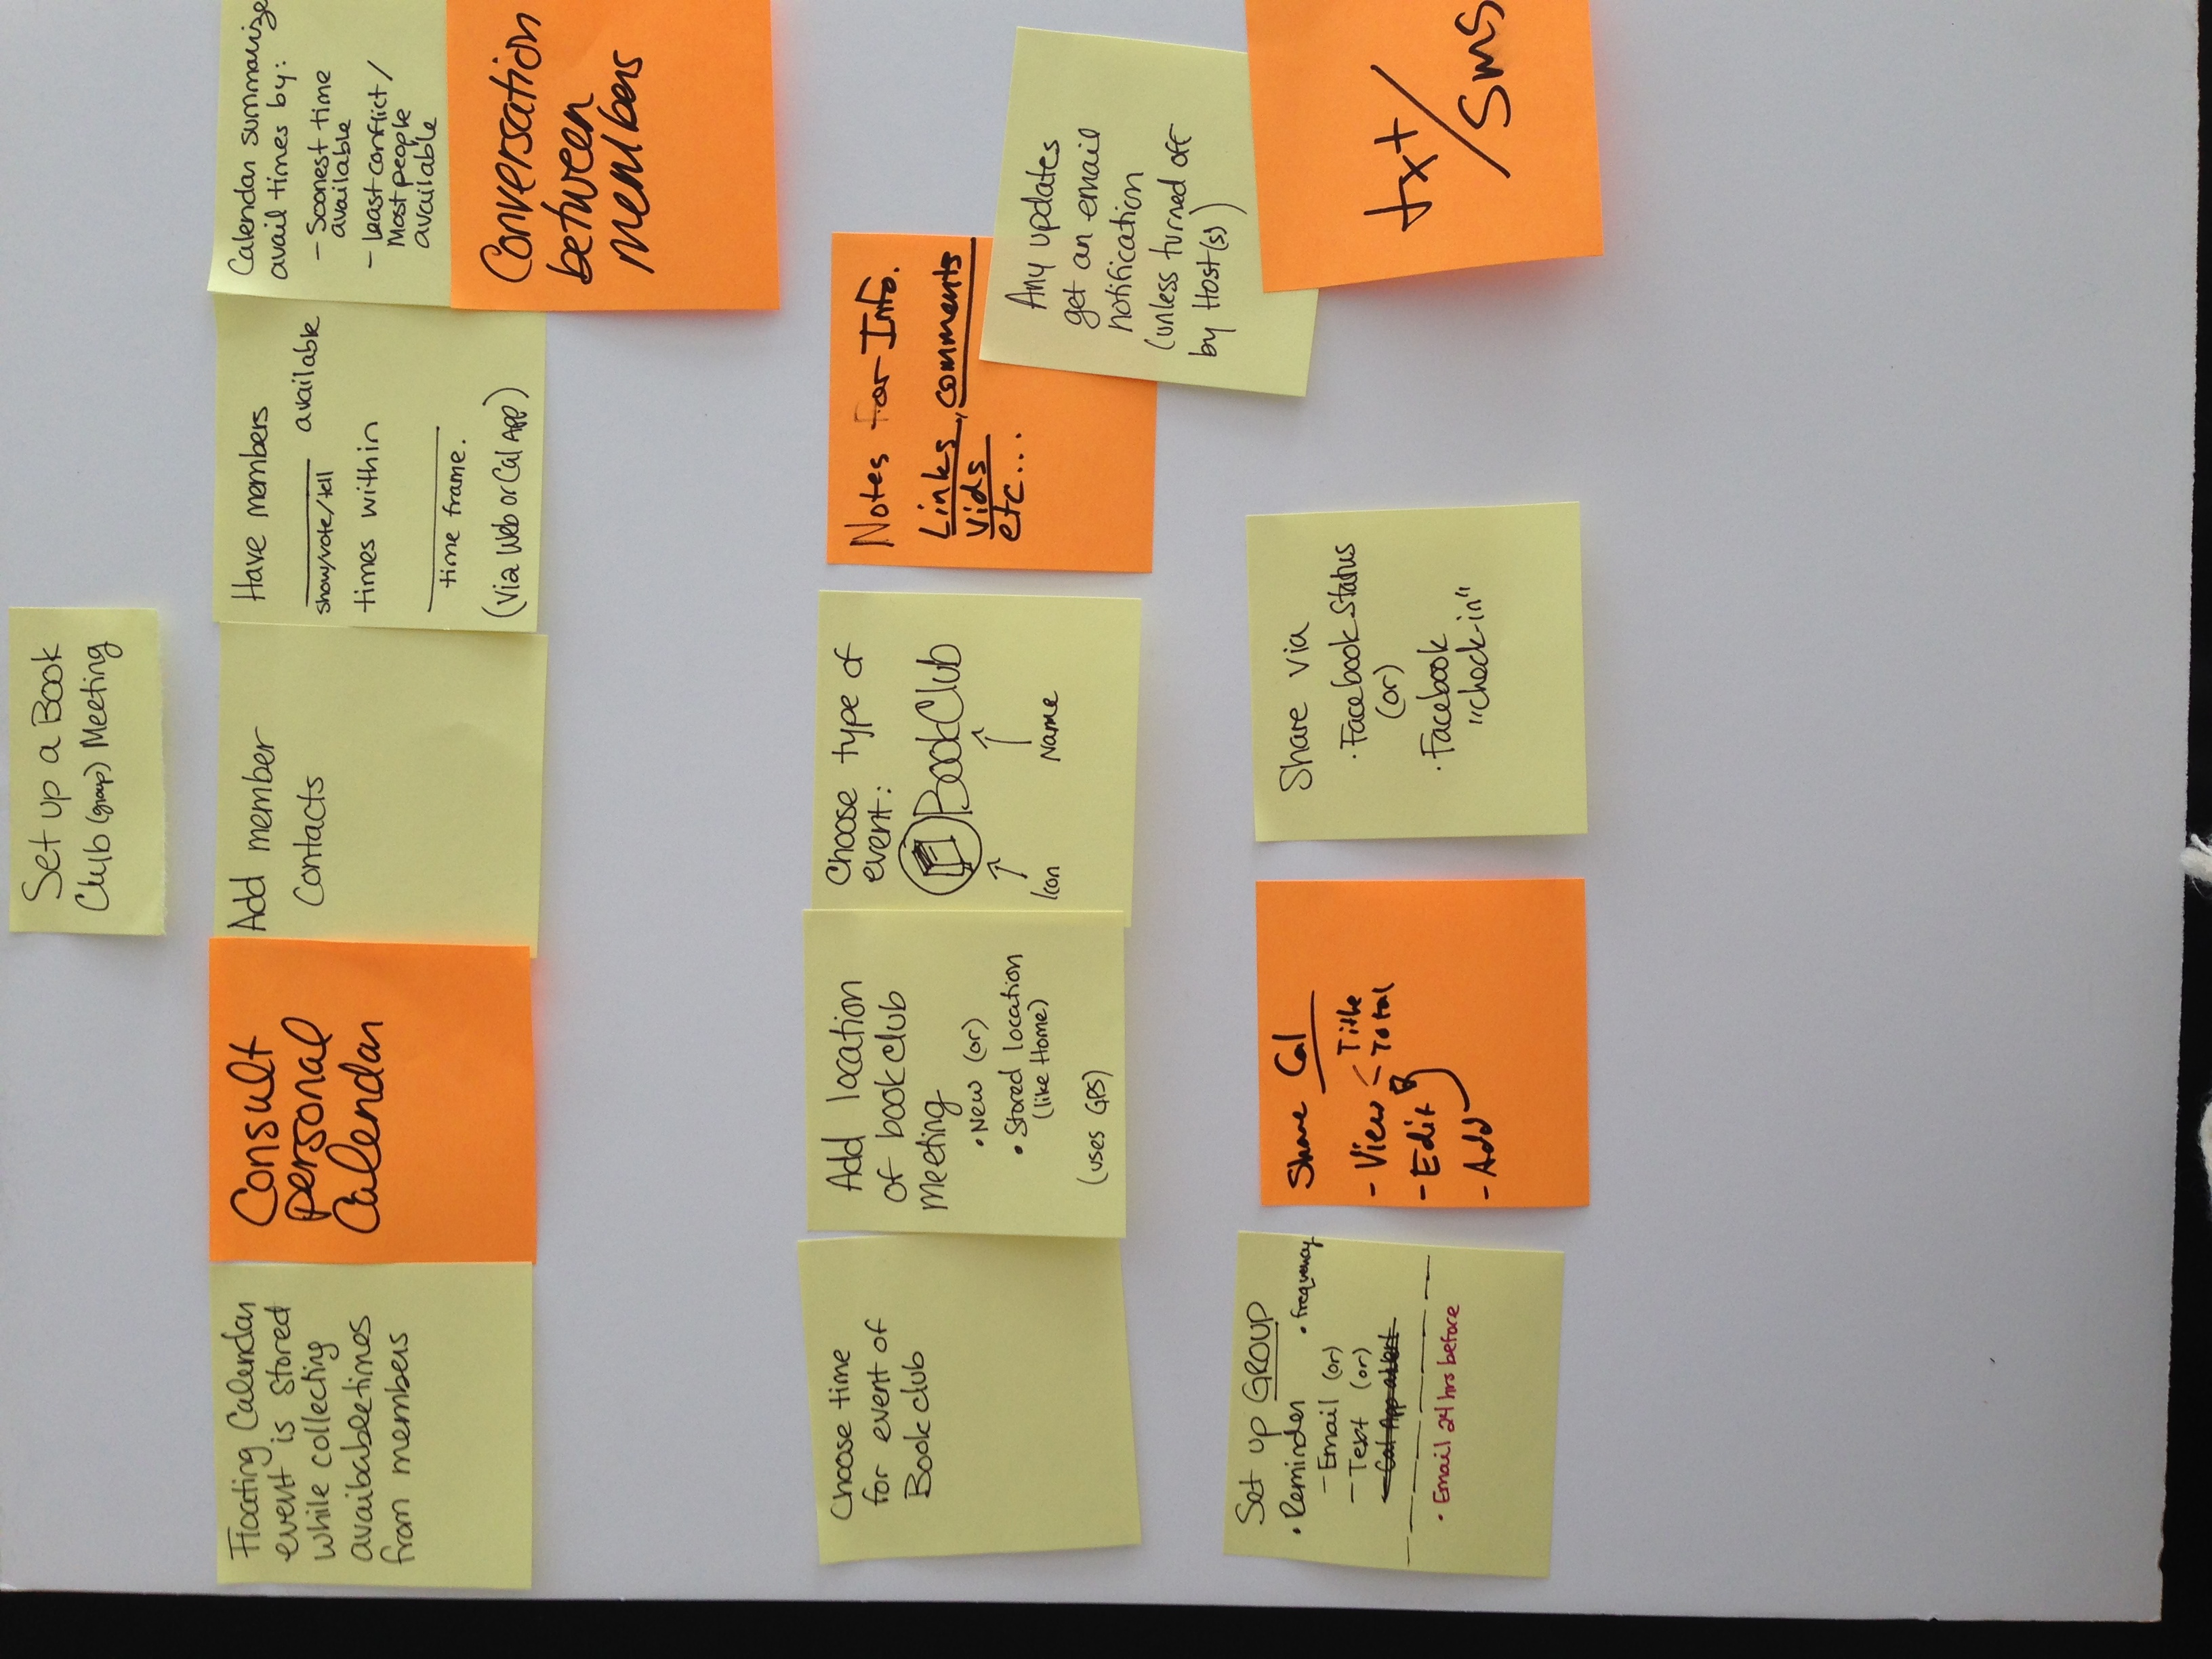 Set up a Book
Club (group) Meeting
Floating Calendar
event is stored
while collecting
avaibabletimes
from members
Consult
personal
Calendar
Add member
Contacts
Have members
________ available
show/vote/tell
times within
________
time frame.
(via Web or Cal App)
Calendar summarize
avail times by:
- Soonest time
available
- Least conflict/
Most people
available
Conversation
between
members
Choose time
for event of
Book club
Add location
of book club
Meeting
• New (or)
• Stored location
(like Home)
(uses GPS)
Choose type of
event:
BookClub
Icon
Name
Notes For Info.
Links, comments
vids
etc...
Any updates
get an email
notification
(unless turned off
by Host(s))
Set up GROUP
• Reminder • frequency
- Email (or)
- Text (or)
- Cal App alert
• Email 24 hrs before
Share Cal
- View - Title
- Total
- Edit
- Add
Share via
• Facebook Status
(or)
• Facebook
"check-in"
txt/
SMS